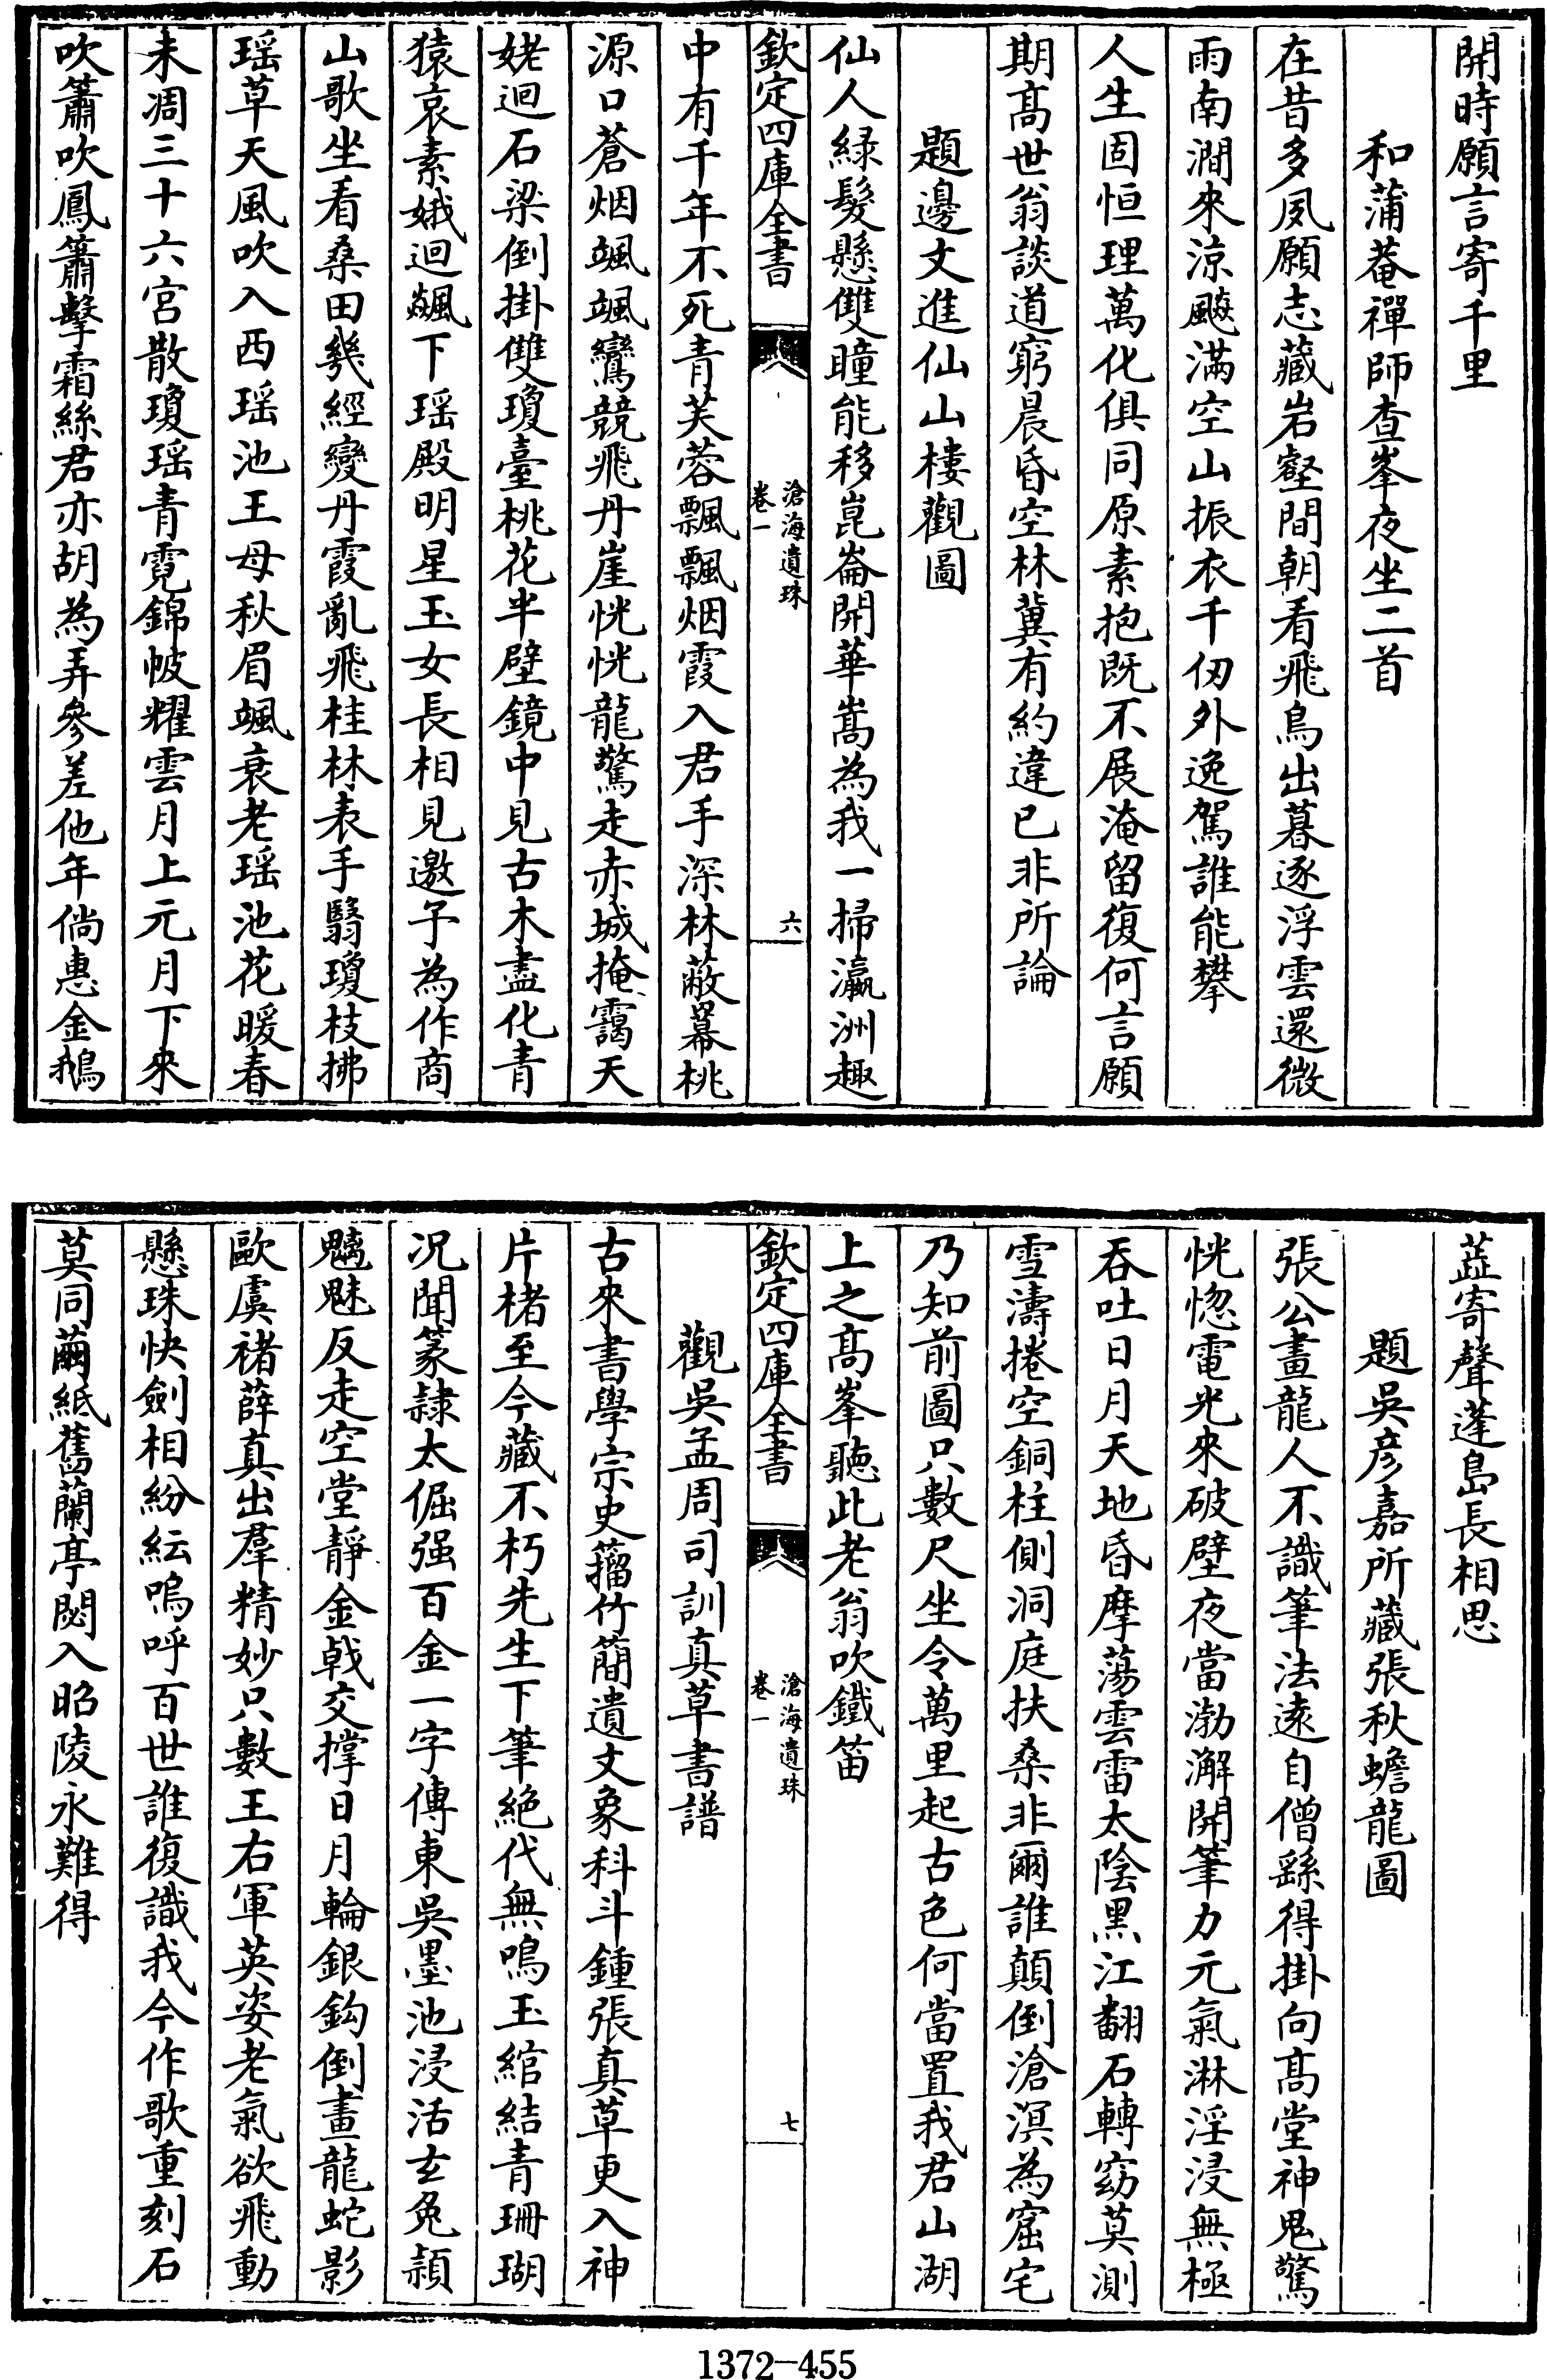 開時願言寄千里
和蒲菴禪師查峯夜坐二首
在昔多夙願志藏岩壑間朝看飛鳥出暮逐浮雲還微
雨南澗來涼飈滿空山振衣千仞外逸駕誰能攀
人生固恒理萬化俱同原素抱既不展淹留復何言願
期髙世翁談道窮晨昏空林冀有約違已非所論
題邊文進仙山樓觀圖
仙人緑髮懸雙瞳能移崑崙開華嵩為我一掃瀛洲趣
欽定四庫全書
滄海遺珠
卷一
六
中有千年不死青芙蓉飄飄烟霞入君手深林蔽幕桃
源口蒼烟颯颯鸞競飛丹崖恍恍龍驚走赤城掩靄天
姥迴石梁倒掛雙瓊臺桃花半壁鏡中見古木盡化青
猿哀素娥迴飊下瑶殿明星玉女長相見邀子為作商
山歌坐看桑田幾經變丹霞亂飛桂林表手翳瓊枝拂
瑶草天風吹入西瑶池王母秋眉颯衰老瑶池花暖春
未凋三十六宮散瓊瑶青霓錦帔耀雲月上元月下來
吹簫吹鳳簫擊霜絲君亦胡為弄參差他年倘惠金鵝
蕋寄聲蓬島長相思
題吳彦嘉所藏張秋蟾龍圖
張公畫龍人不識筆法逺自僧繇得掛向髙堂神鬼驚
恍惚電光來破壁夜當渤澥開筆力元氣淋淫浸無極
吞吐日月天地昏摩蕩雲雷太陰黑江翻石轉窈莫測
雪濤捲空銅柱側洞庭扶桑非爾誰顛倒滄溟為窟宅
乃知前圖只數尺坐令萬里起古色何當置我君山湖
上之髙峯聽此老翁吹鐵笛
欽定四庫全書
滄海遺珠
卷一
七
觀吳孟周司訓真草書譜
古來書學宗史籀竹簡遺文象科斗鍾張真草更入神
片楮至今藏不朽先生下筆絶代無鳴玉綰結青珊瑚
况聞篆隷太倔强百金一字傳東吳墨池浸活玄兔頴
魑魅反走空堂靜金戟交撑日月輪銀鈎倒畫龍蛇影
歐虞褚薛真出羣精妙只數王右軍英姿老氣欲飛動
懸珠快劍相紛紜嗚呼百世誰復識我今作歌重刻石
莫同繭紙舊蘭亭閟入昭陵永難得
1372-455